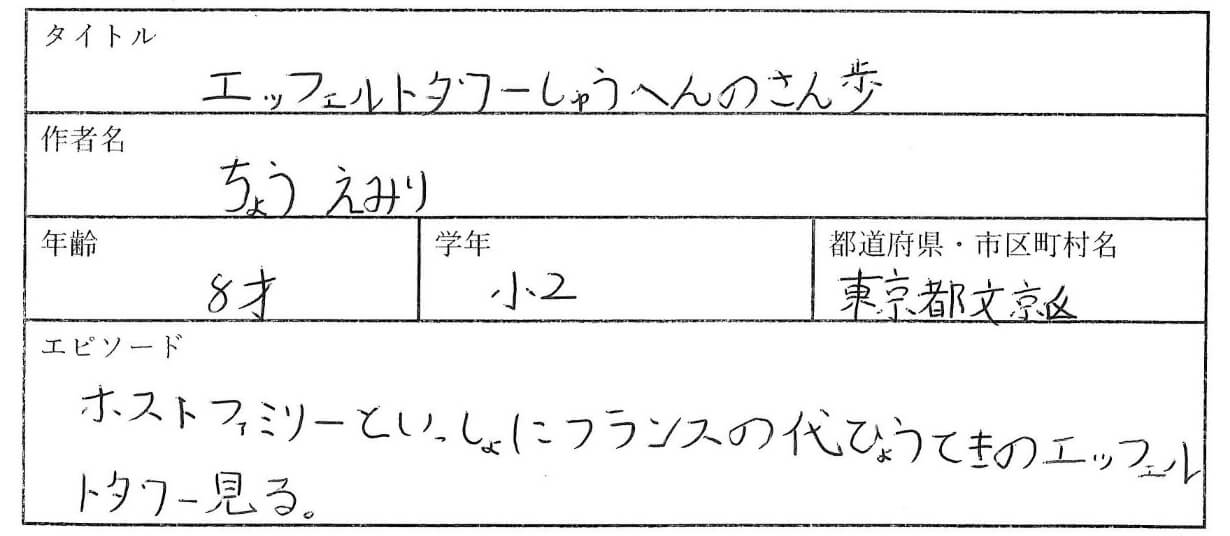 タイトル
エッフェルトタワーしゅうへんのさん歩
作者名
ちょう えみり
年齢
8才
学年
小2
都道府県・市区町村名
東京都文京区
エピソード
ホストファミリーといっしょにフランスの代ひょうてきのエッフェル
トタワー見る。